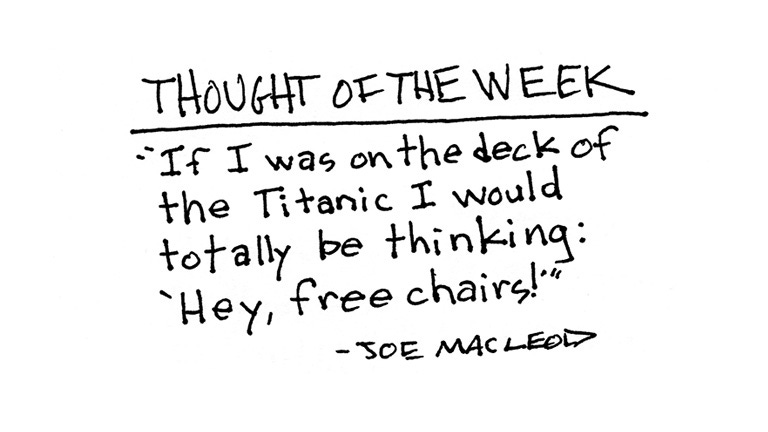 THOUGHT OF THE WEEK
"If I was on the deck of
the Titanic I would
totally be thinking:
‘Hey, free chairs!’"
-JOE MACLEOD